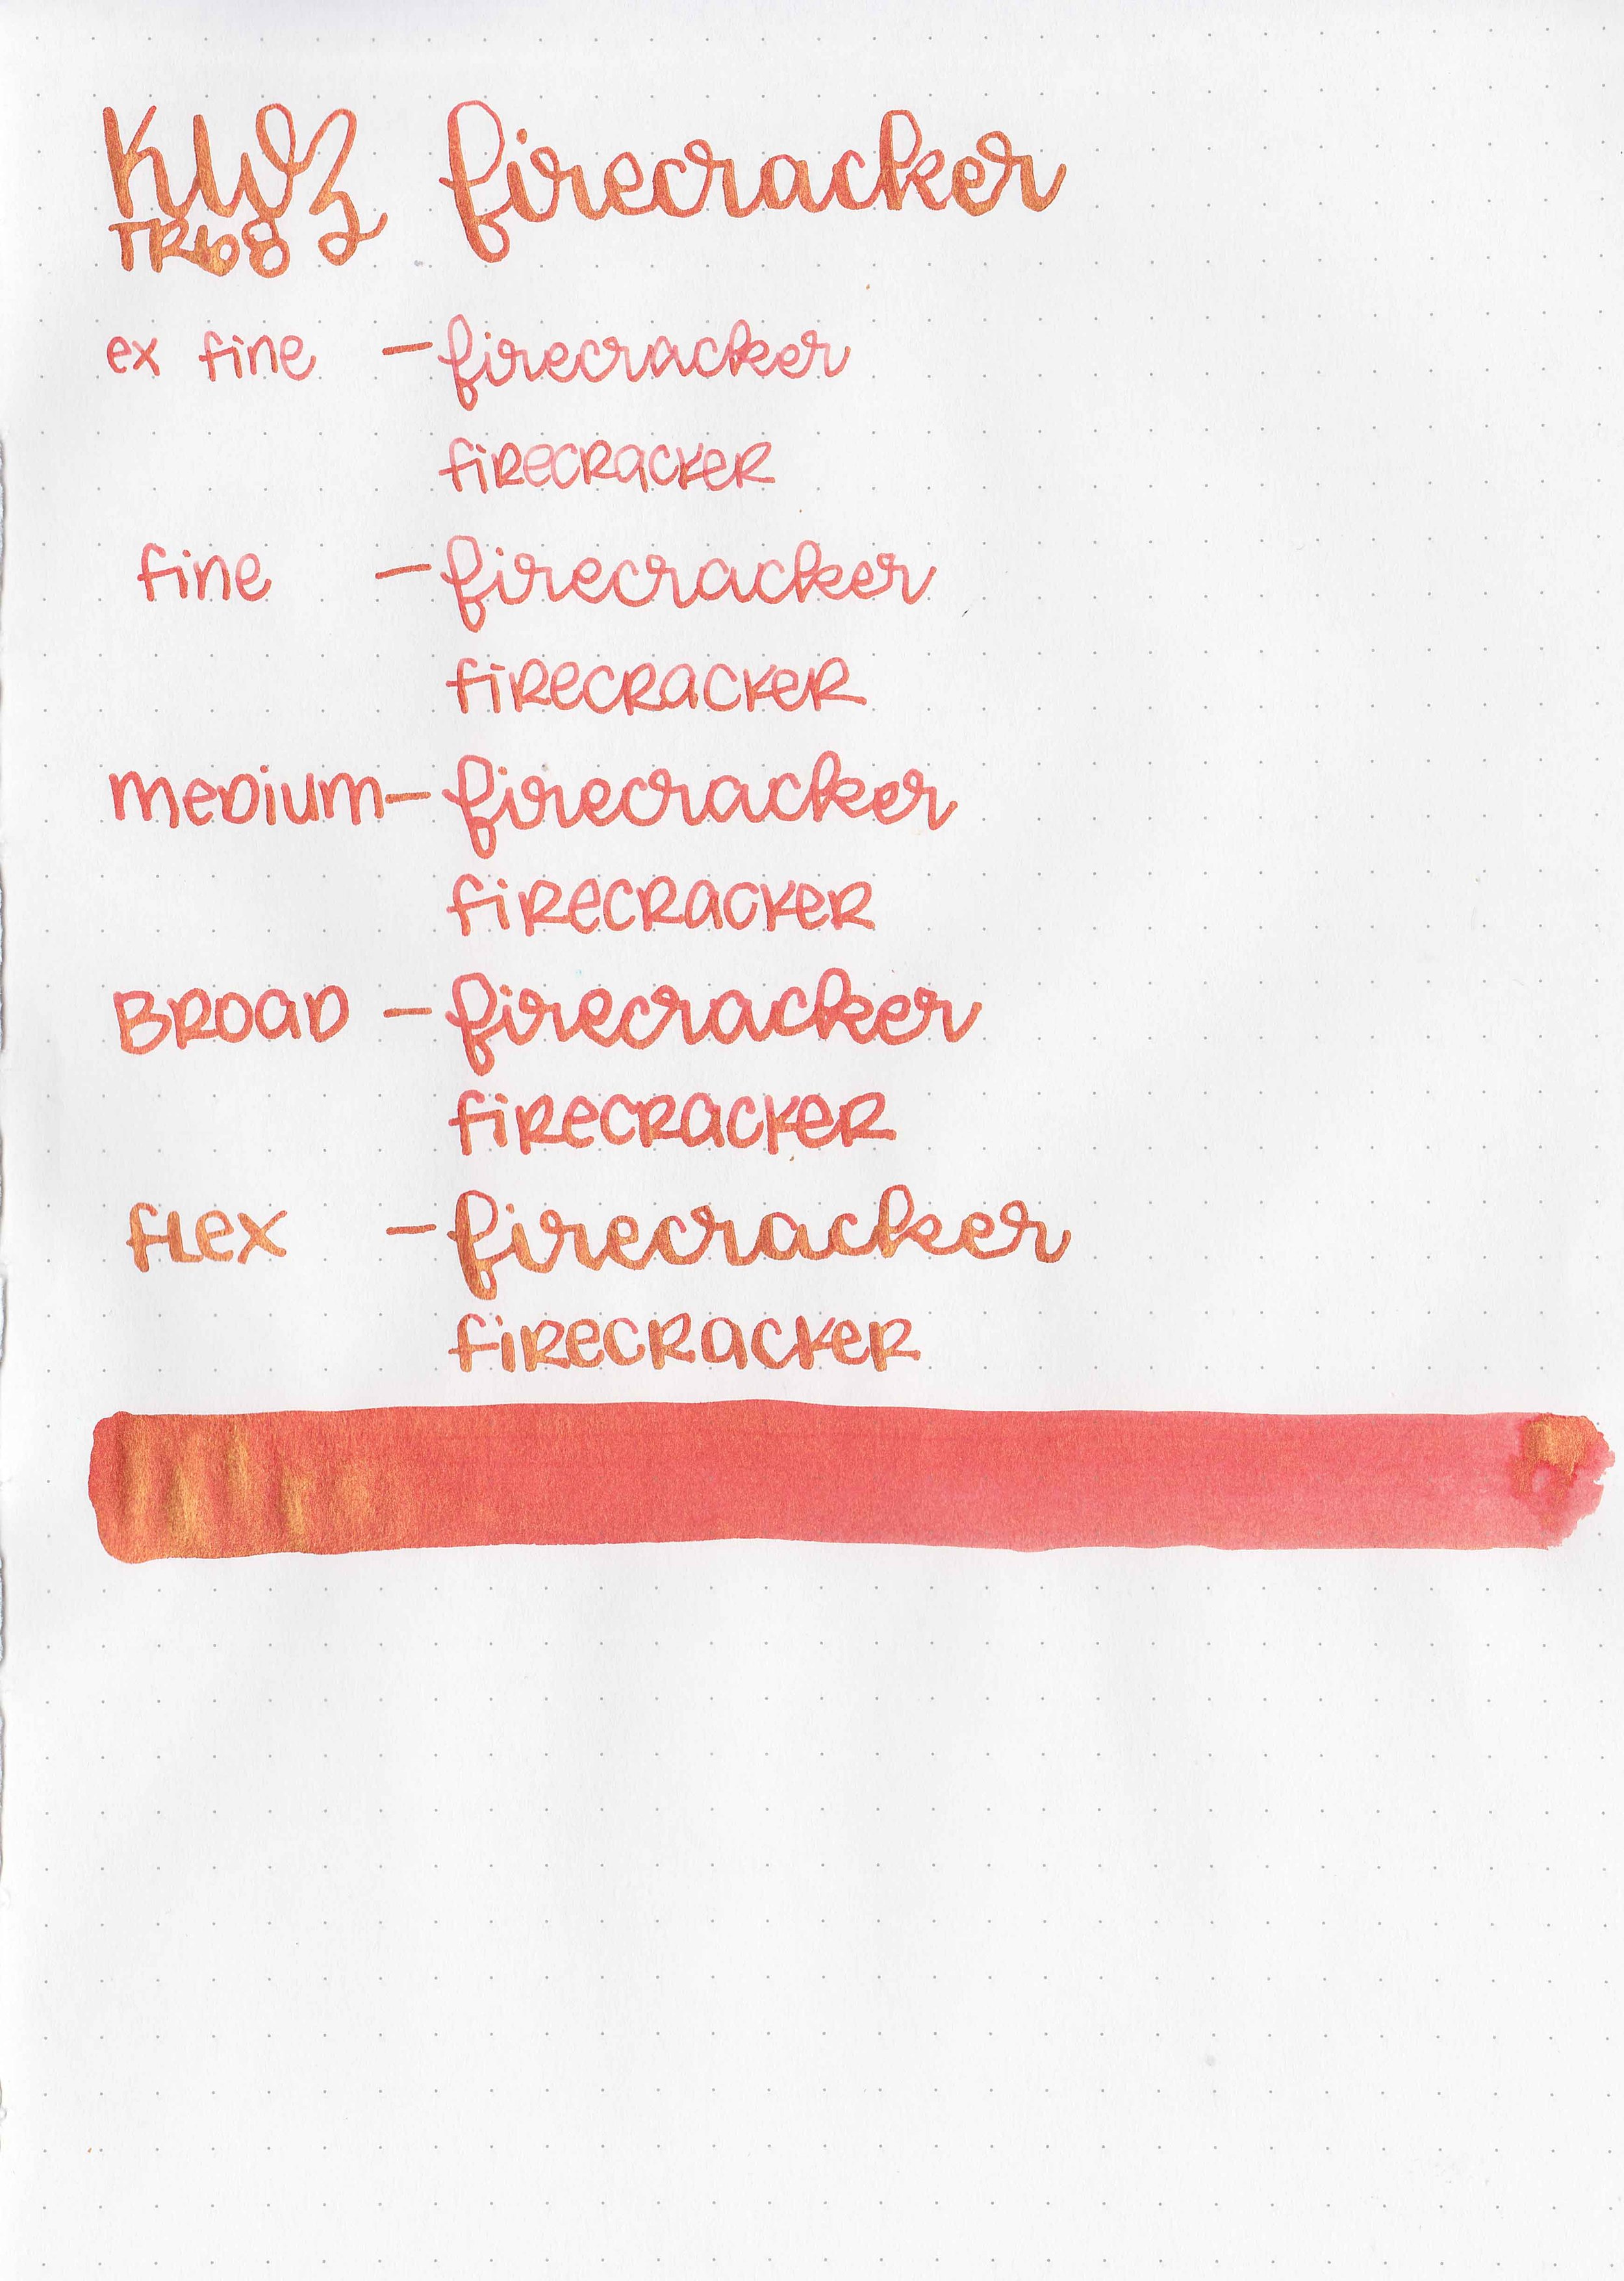 KWZ firecracker
TR68
ex fine - firecracker
firecracker
fine - firecracker
firecracker
medium - firecracker
firecracker
BROAD - firecracker
firecracker
flex - firecracker
firecracker